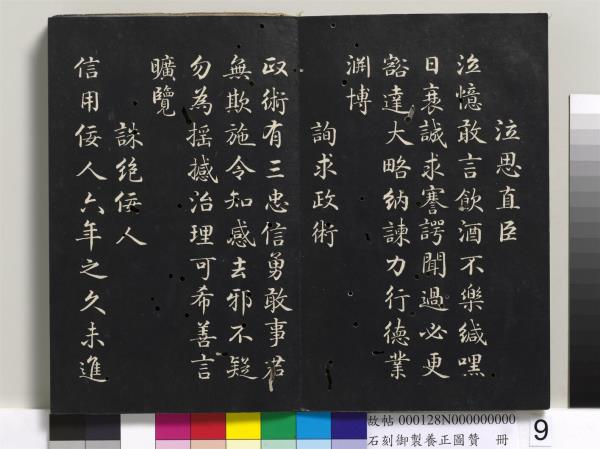 泣思直臣
泣憶敢言飲酒不樂緘嘿
日衰誠求謇諤聞過必更
豁達大略納諫力行德業
淵博
詢求政術
政術有三忠信勇敢事君
無欺施令知感去邪不疑
勿為摇撼治理可希善言
曠覽
誅絶佞人
信用佞人六年之久未進
故帖 000128N000000000
石刻御製養正圖贊 冊
9